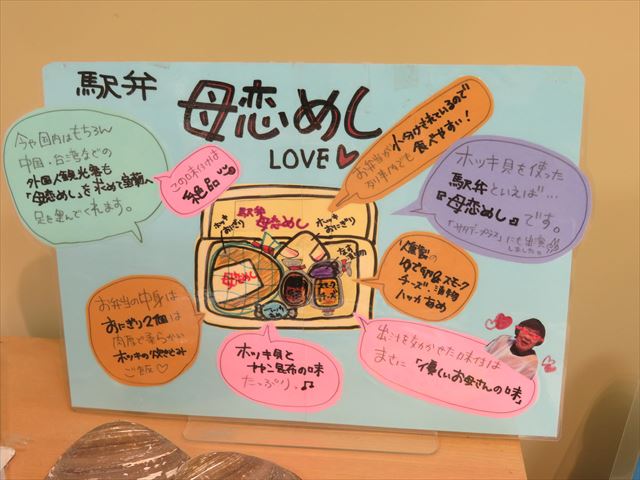 駅弁
母恋めし
LOVE
今や国内はもちろん
中国・台湾などの
外国人観光客も
「母恋めし」を求めて室蘭へ
足を運んでくれます。
この味付けは
絶品
お弁当が小分けされているので
列車内でも食べやすい!
ホッキ貝を使った
駅弁といえば…
『母恋めし』です。
にも出演
しました。
駅弁
母恋めし
ホッキ
おにぎり
ホッキ
おにぎり
母恋めし
スモーク
チーズ
燻製の
ゆで卵&スモーク
チーズ・漬物
ハッカあめ
お弁当の中身は
おにぎり2個は
肉厚で柔らかい
ホッキの炊き込み
ご飯
ホッキ貝と
昆布の味
たっぷり♪
出汁をきかせた味付は
まさに「優しいお母さんの味」